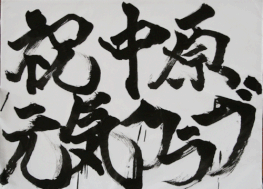 祝中原
元気クラブ